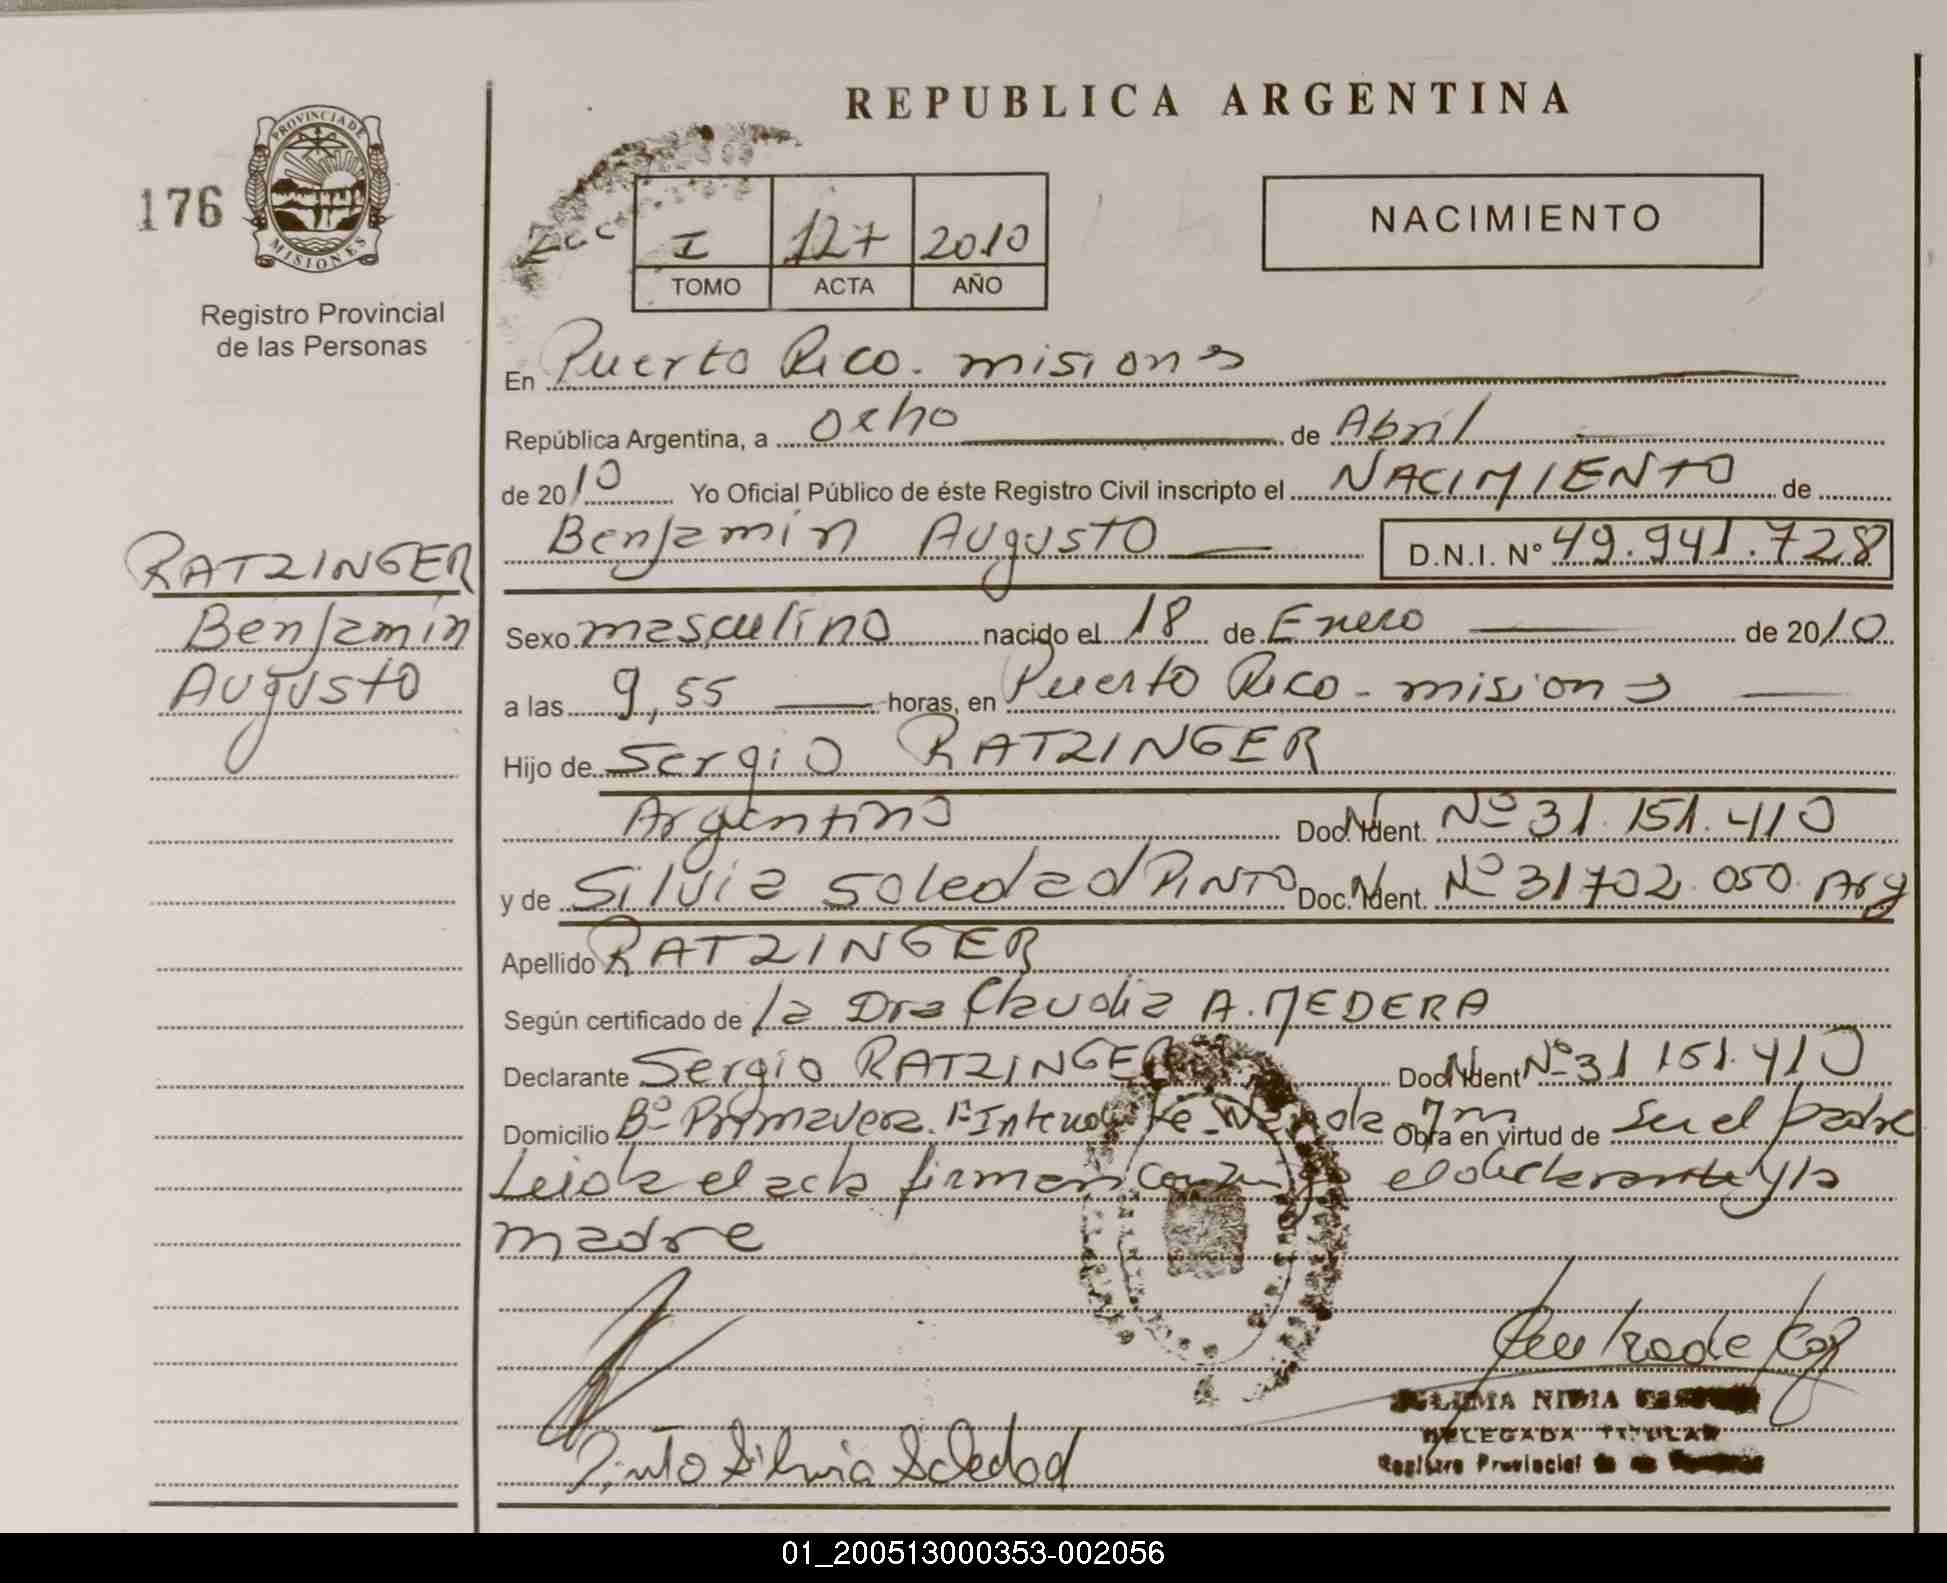 REPUBLICA ARGENTINA
176
PROVINCIA DE
MISIONES
Registro Provincial
de las Personas
I 127 2010
TOMO ACTA AÑO
NACIMIENTO
En Puerto Rico. misiones
República Argentina, a ocho de Abril
de 2010 Yo Oficial Público de éste Registro Civil inscripto el NACIMIENTO de
Benjamín Augusto D.N.I. Nº 49.941.728
RATZINGER
Benjamín
Augusto
Sexo masculino nacido el 18 de Enero de 2010
a las 9,55 horas, en Puerto Rico - misiones
Hijo de Sergio RATZINGER
Argentino Doc. Ident. Nº 31.151.410
y de Silvia Soledad PINTO Doc. Ident. Nº 31702.050. Arg
Apellido RATZINGER
Según certificado de la Dra Claudia A. MEDERA
Declarante Sergio RATZINGER Doc. Ident Nº 31 151.410
Domicilio Bº Primavera. Obra en virtud de ser el padre
Leida el acta firman conmigo el declarante y la
madre
Pinto Silvia Soledad
NIDIA
DELEGADA TITULAR
Registro Provincial de
01_200513000353-002056